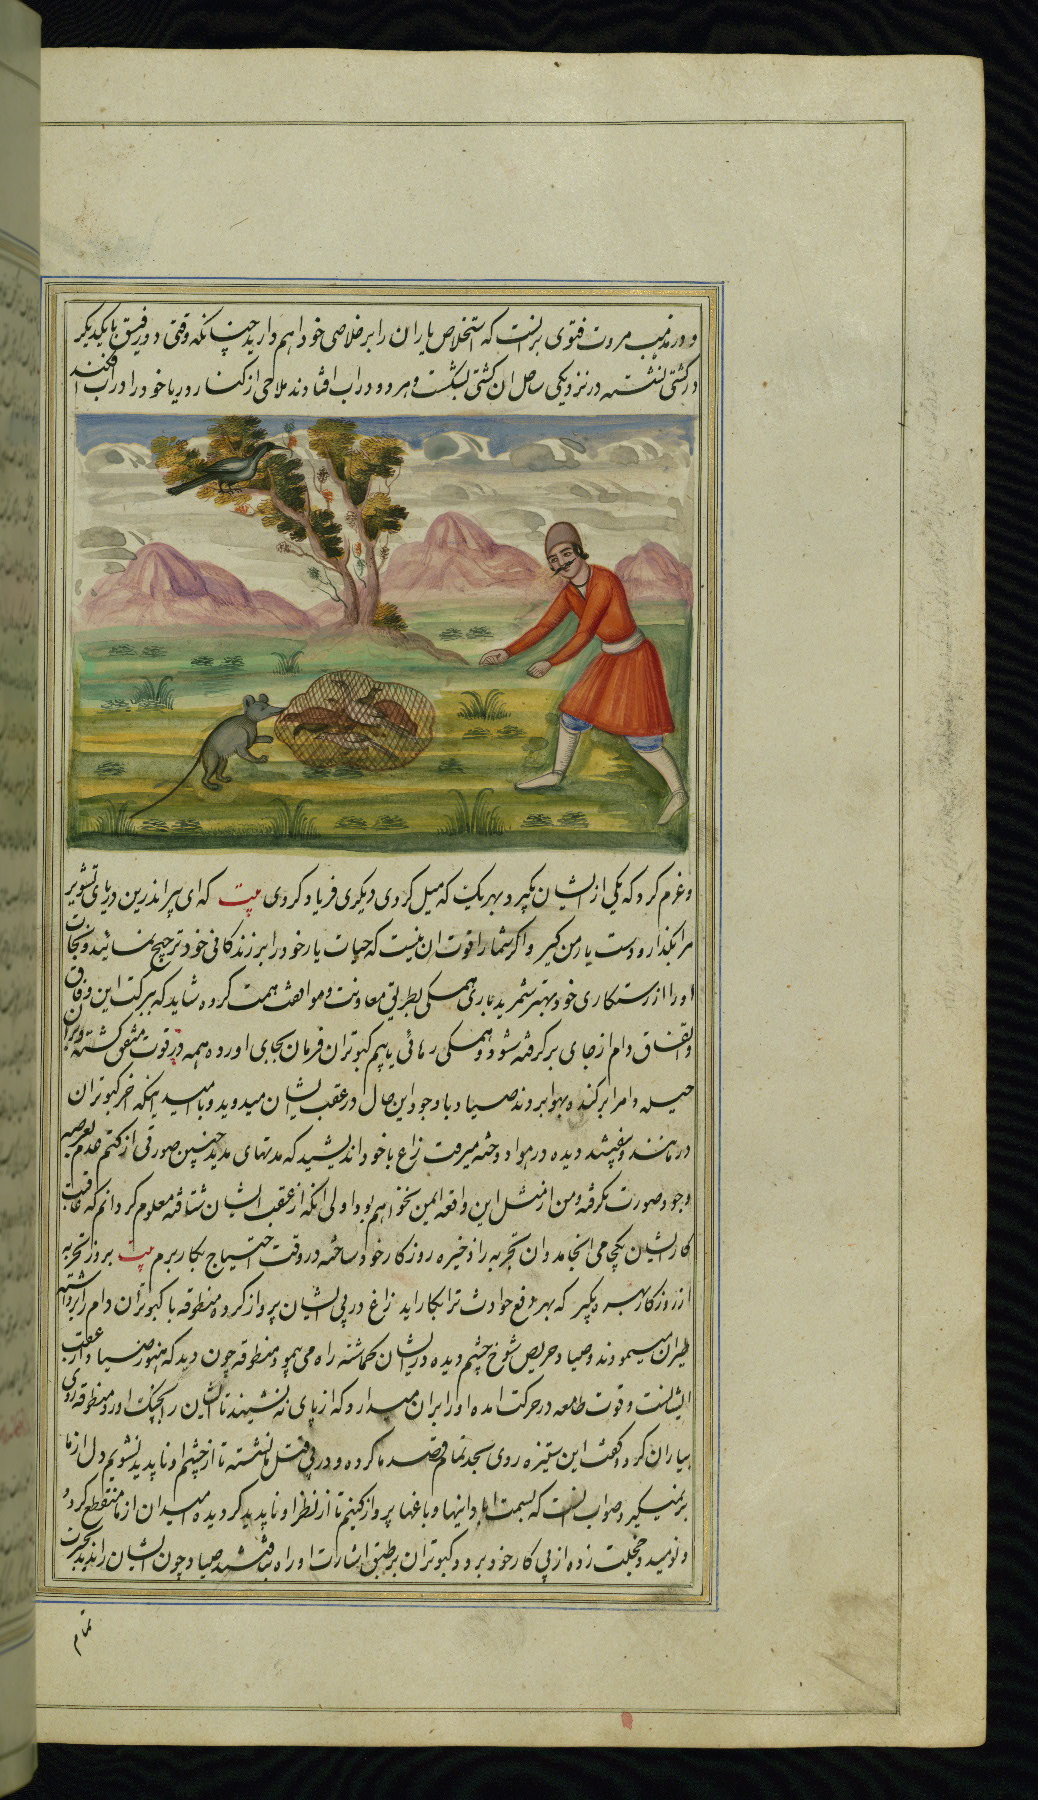 و در مذهب مروت فتوی برانست که استخلاص یاران را بر خلاصی خود اهم دارید چنانکه وقتی دو رفیق با یکدیگر
در کشتی نشسته در نزدیکی ساحل ان کشتی بشکست و هر دو در اب افتادند ملاحی از کنار دریا خود را در اب افکند
و عزم کرد که یکی از ایشان بگیرد بهر یک که میل کردی دیگری فریاد کردی بیت که ای پیر اندرین دریای تشویر
مرا بگذار و دست یار من گیر و اگر شما را قوت ان نیست که حیات یار خود را بر زندگانی خود ترجیح نمائید و نجات
او را از رستکاری خود بهتر شمرید باری همکی بطریق معاونت و موافقت همت کرده شاید که ببرکت این وفاق
و اتفاق دام از جای برکرفته شود و همکی رهائی یابیم کبوتران فرمان بجای اورده همه در قوت متفق کشته و بران
حیله دام را برکنده بهوا بردند صیاد با وجود این حال در عقب ایشان میدوید و بامید اینکه اخر کبوتران
درمانند و بیفتند دیده در هوا دوخته میرفت زاغ با خود اندیشید که مدتهای مدید چنین صورتی از کتم عدم بعرصه
وجود صورت نکرفته و من از مثل این واقعه ایمن نخواهم بود اولی انکه از عقب ایشان شتافته معلوم کردانم که عاقبت
کار ایشان بکجا می انجامد و ان تجربه را ذخیره روزکار خود ساخته در وقت احتیاج بکار برم بیت بروز تجربه
از روزکار بهره بگیر که بهر دفع حوادث ترا بکار اید زاغ در پی ایشان پرواز کرده مطوقه با کبوتران دام را برداشته
طیران مینمودند و صیاد حریص شوخ چشم دیده در ایشان کماشته راه می پیمود مطوقه چون دید که هنوز صیاد در عقب
ایشانست و قوت طامعه در حرکت امده او را بران میدارد که از پای نه نشیند تا ایشان را بچنک اورد مطوقه روی
بیاران کرد و کفت این ستیزه روی بجد تمام قصد ما کرده و در پی قتل ما نشسته تا از چشم او ناپدید نشویم دل از ما
بر نمیکیرد صواب انست که بسمت ابادانیها و باغها پرواز کنیم تا از نظر او ناپدید کردیده میدان از ما منقطع کردد
و نومید و خجلت زده از پی کار خود برود کبوتران بر طبق اشارت او راه بتافتند صیاد چون ایشان را ندید بحیرت
تمام